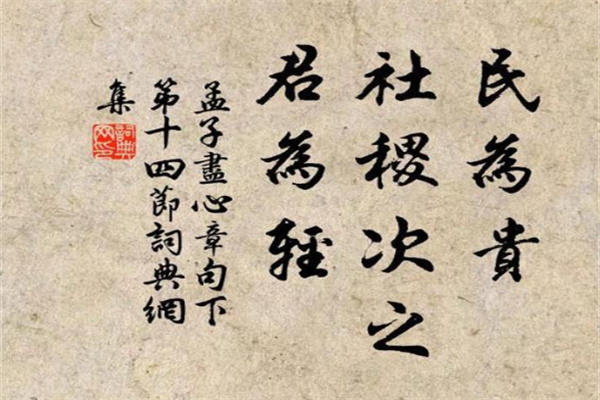 民為貴
社稷次之
君為輕
孟子盡心章句下
第十四節詞典網
集
詞典網印